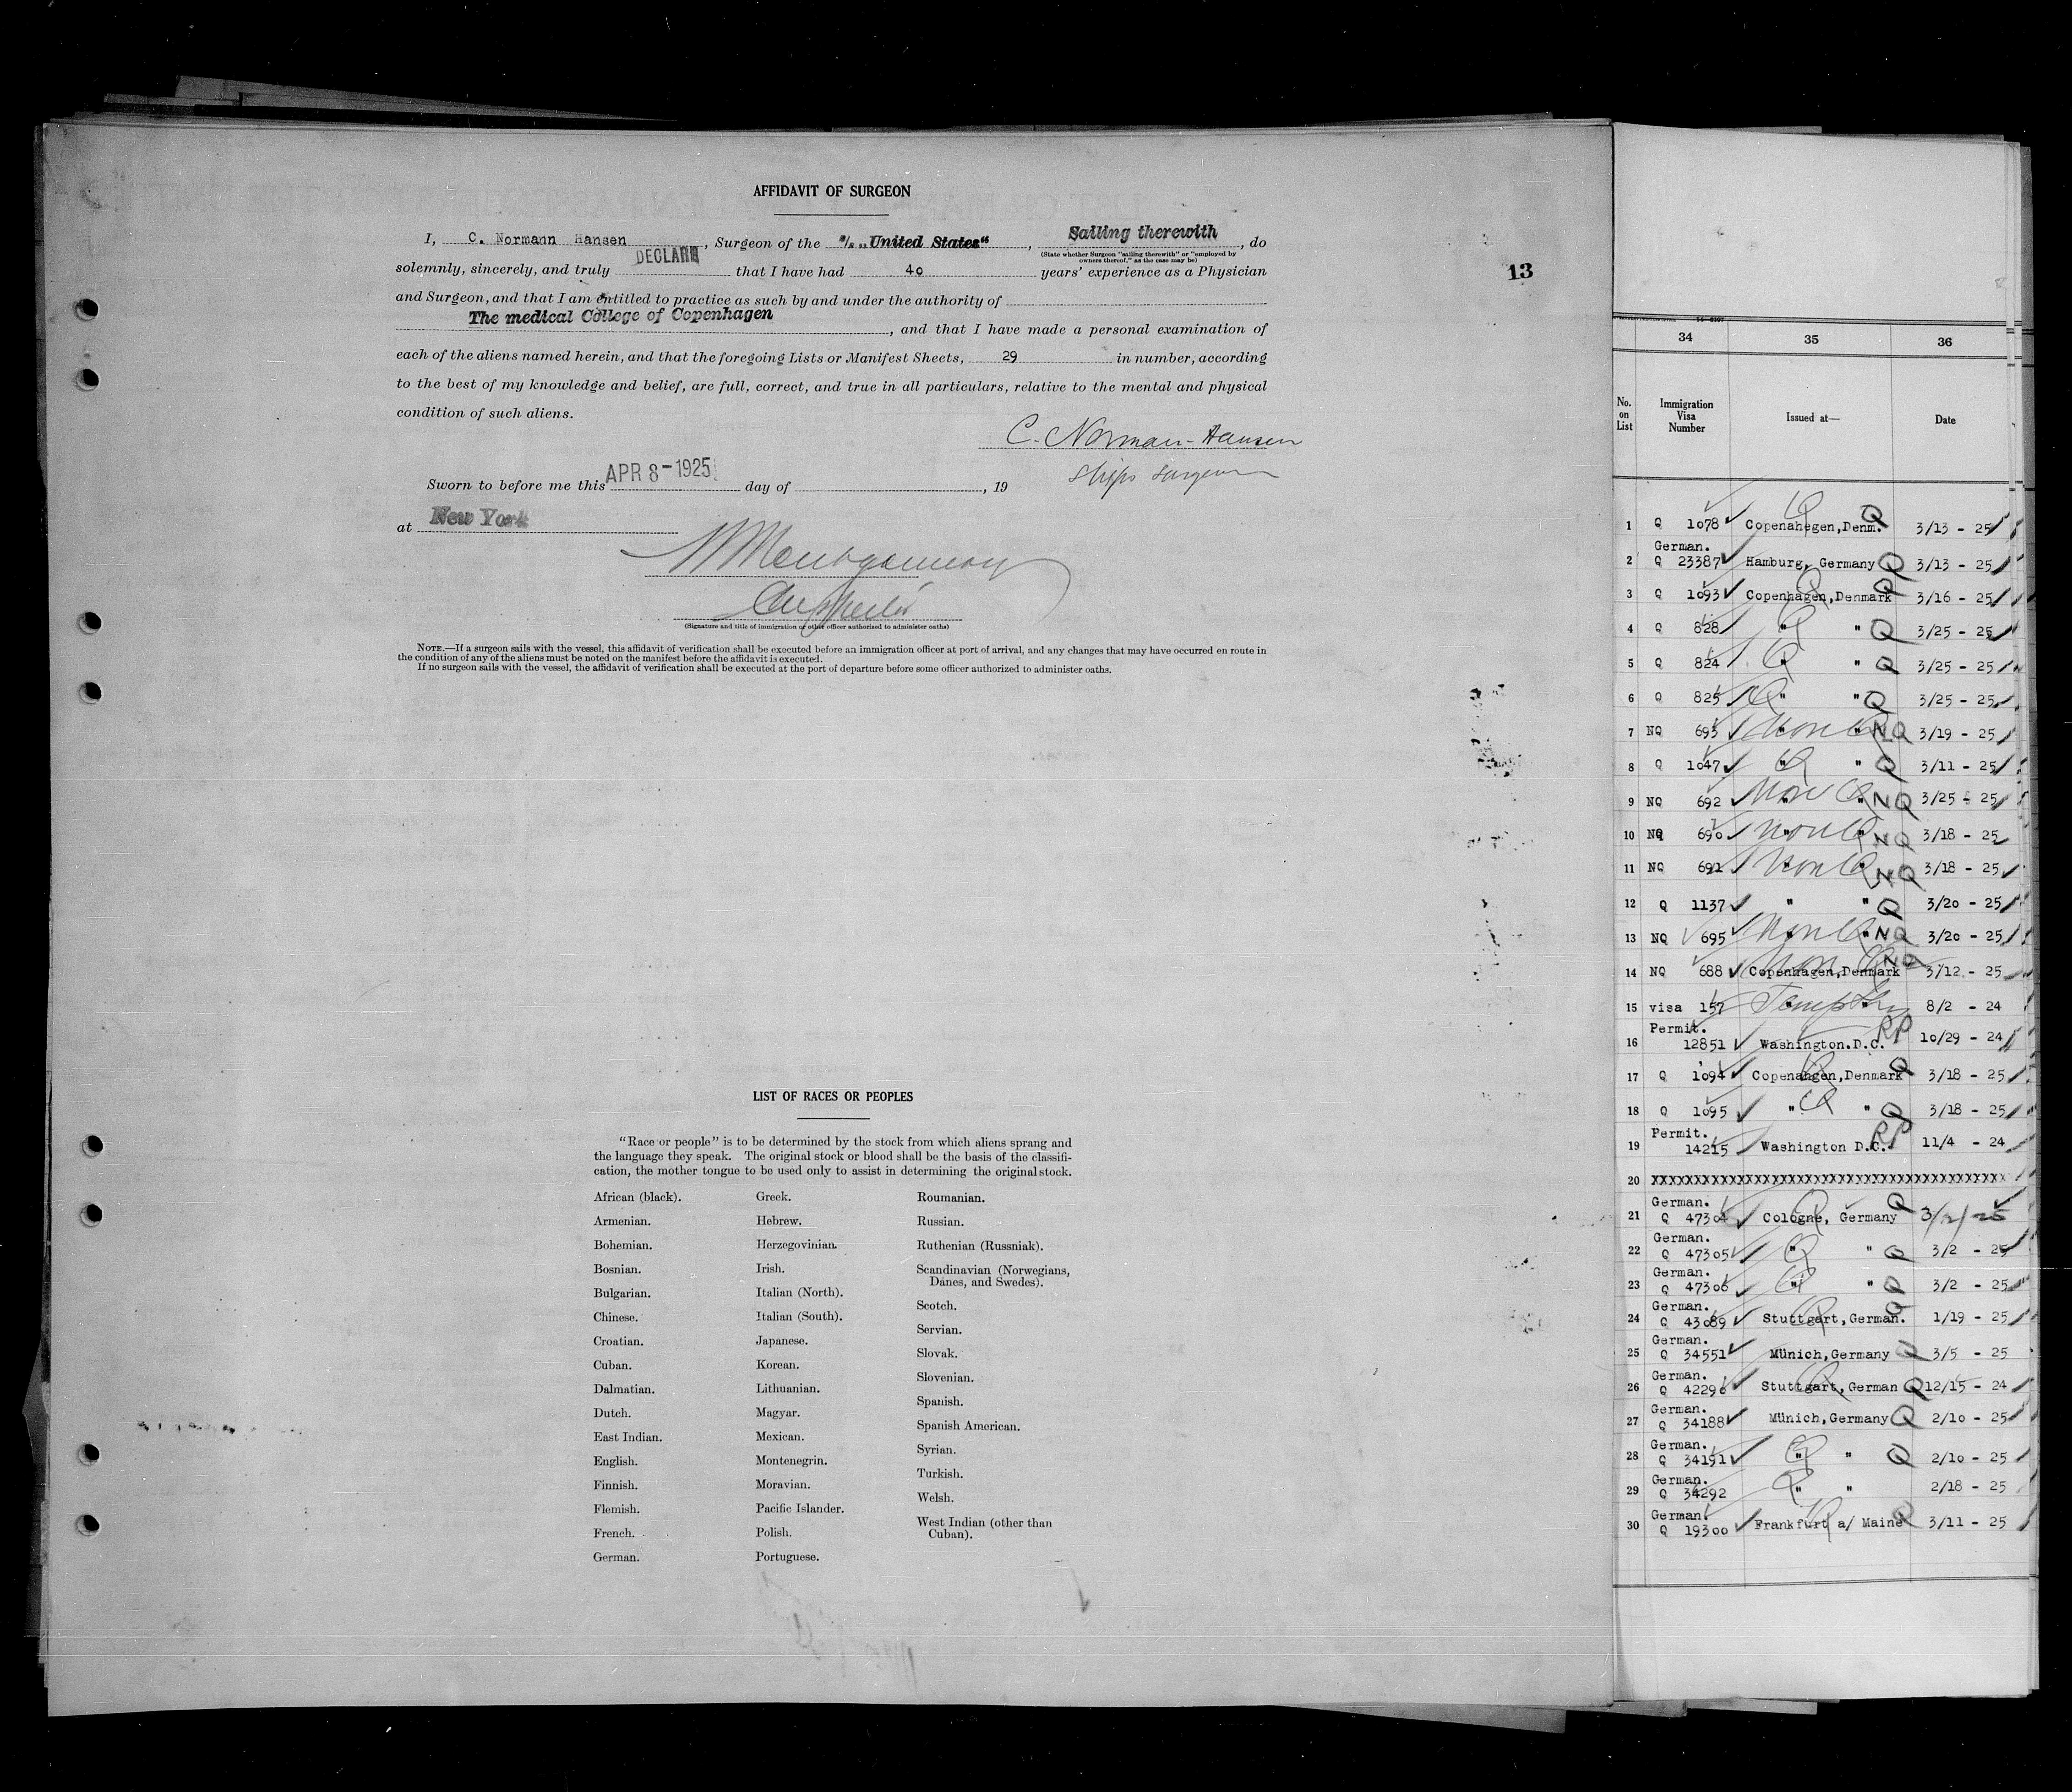 AFFIDAVIT OF SURGEON
I, C. Normann Hansen, Surgeon of the s/s „United States“, Sailing therewith, do
(State whether Surgeon "sailing therewith" or "employed by
owners thereof," as the case may be)
solemnly, sincerely, and truly DECLARE that I have had 40 years' experience as a Physician
and Surgeon, and that I am entitled to practice as such by and under the authority of
The medical College of Copenhagen, and that I have made a personal examination of
each of the aliens named herein, and that the foregoing Lists or Manifest Sheets, 29 in number, according
to the best of my knowledge and belief, are full, correct, and true in all particulars, relative to the mental and physical
condition of such aliens.
C. Norman-Hansen
ships surgeon
Sworn to before me this APR 8-1925 day of , 19
at New York
Montgomery
(Signature and title of immigration or other officer authorized to administer oaths)
NOTE.—If a surgeon sails with the vessel, this affidavit of verification shall be executed before an immigration officer at port of arrival, and any changes that may have occurred en route in
the condition of any of the aliens must be noted on the manifest before the affidavit is executed.
If no surgeon sails with the vessel, the affidavit of verification shall be executed at the port of departure before some officer authorized to administer oaths.
LIST OF RACES OR PEOPLES
"Race or people" is to be determined by the stock from which aliens sprang and
the language they speak. The original stock or blood shall be the basis of the classifi-
cation, the mother tongue to be used only to assist in determining the original stock.
African (black).
Armenian.
Bohemian.
Bosnian.
Bulgarian.
Chinese.
Croatian.
Cuban.
Dalmatian.
Dutch.
East Indian.
English.
Finnish.
Flemish.
French.
German.
Greek.
Hebrew.
Herzegovinian.
Irish.
Italian (North).
Italian (South).
Japanese.
Korean.
Lithuanian.
Magyar.
Mexican.
Montenegrin.
Moravian.
Pacific Islander.
Polish.
Portuguese.
Roumanian.
Russian.
Ruthenian (Russniak).
Scandinavian (Norwegians,
Danes, and Swedes).
Scotch.
Servian.
Slovak.
Slovenian.
Spanish.
Spanish American.
Syrian.
Turkish.
Welsh.
West Indian (other than
Cuban).
13
34 35 36
No. on List Immigration Visa Number Issued at— Date
1 Q 1078 Copenahegen,Denm. Q 3/13 - 25
German.
2 Q 23387 Hamburg, Germany Q 3/13 - 25
3 Q 1093 Copenhagen,Denmark Q 3/16 - 25
4 Q 828 " " Q 3/25 - 25
5 Q 824 " " Q 3/25 - 25
6 Q 825 " " Q 3/25 - 25
7 NQ 693 Non Q " NQ 3/19 - 25
8 Q 1047 " " Q 3/11 - 25
9 NQ 692 Non Q " NQ 3/25 - 25
10 NQ 690 Non Q " NQ 3/18 - 25
11 NQ 691 Non Q " NQ 3/18 - 25
12 Q 1137 " " Q 3/20 - 25
13 NQ 695 Non Q " NQ 3/20 - 25
14 NQ 688 Copenhagen,Denmark Non Q NQ 3/12 - 25
15 visa 157 " " 8/2 - 24
Permit.
16 12851 Washington.D.C. RP 10/29 - 24
17 Q 1094 Copenahgen,Denmark Q 3/18 - 25
18 Q 1095 " " Q 3/18 - 25
Permit.
19 14215 Washington D.C. RP 11/4 - 24
20 XXXXXXXXXXXXXXXXXXXXXXXXXXXXXXXXXXXXXXXX
German.
21 Q 47304 Cologne, Germany Q 3/2/25
German.
22 Q 47305 " " Q 3/2 - 25
German.
23 Q 47306 " " Q 3/2 - 25
German.
24 Q 43089 Stuttgart,German. Q 1/19 - 25
German.
25 Q 34551 Münich,Germany Q 3/5 - 25
German.
26 Q 42296 Stuttgart,German Q 12/15 - 24
German.
27 Q 34188 Münich,Germany Q 2/10 - 25
German.
28 Q 34191 " " Q 2/10 - 25
German.
29 Q 34292 " " 2/18 - 25
German.
30 Q 19300 Frankfurt a/ Maine Q 3/11 - 25